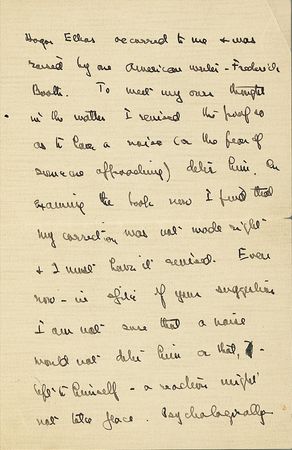 Hagar Ellias occurred to me & was
raised by one American writer - Frederick
Booth. To meet my own thought
in the matter I revised the proof so
as to have a noise (or the fear of
someone approaching) deter him. On
examining the book now I find that
my correction was not made right
& I must have it revised. Even
now - in spite of your suggestion
I am not sure that a noise
would not deter him or that, -
left to himself - a reaction might
not take place. Psychologically